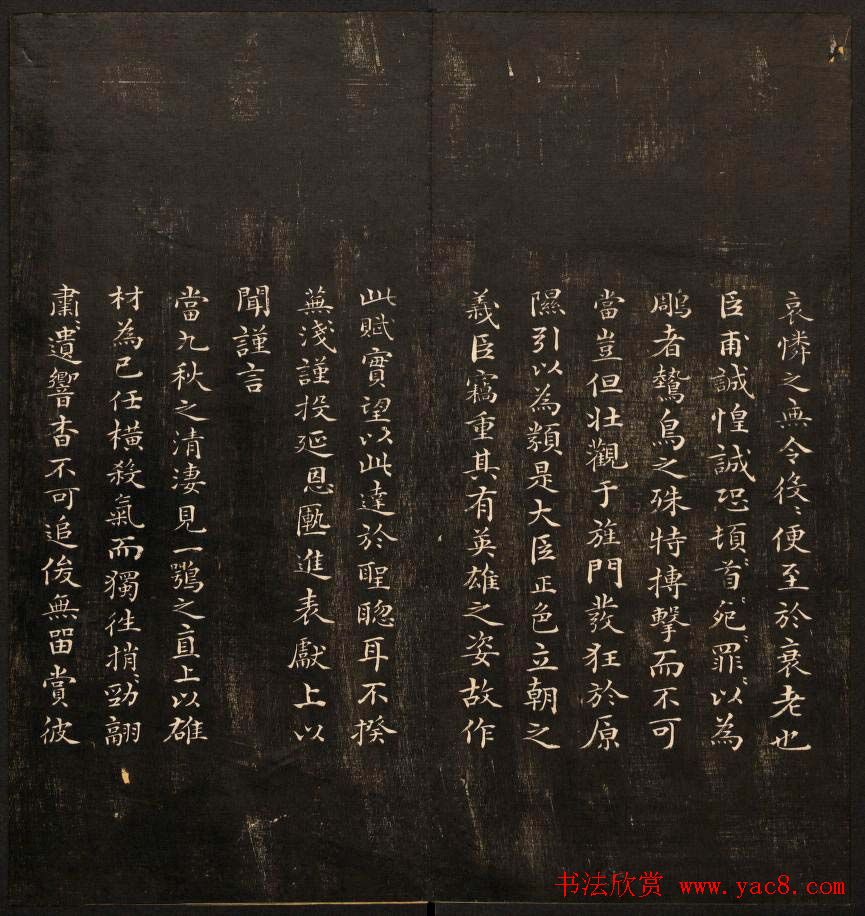 哀憐之無令後〻便至於衰老也
臣甫誠惶誠恐頓〻首〻死〻罪〻以為
鵰者鷙鳥之殊特搏擊而不可
當豈但壯觀于旌門發狂於原
隰引以為類是大臣正色立朝之
義臣竊重其有英雄之姿故作
此賦實望以此達於聖聰耳不揆
蕪淺謹投延恩匭進表獻上以
聞謹言
當九秋之清淒見一鶚之直上以雄
材為己任橫殺氣而獨往捎〻勁翮
肅〻遺響杳不可追俊無留賞彼
书法欣赏 www.yac8.com